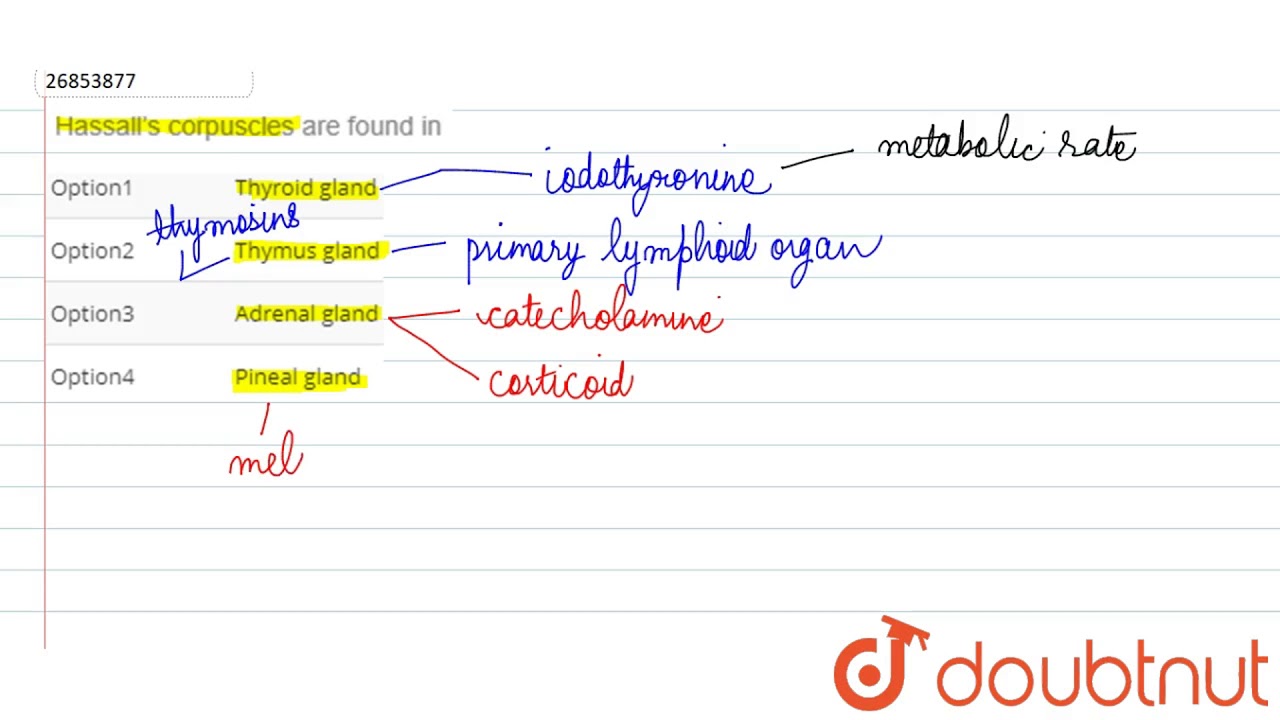 26853877
Hassall's corpuscles are found in
metabolic rate
Option1 Thyroid gland
iodothyronine
thymosins
Option2 Thymus gland
primary lymphoid organ
Option3 Adrenal gland
catecholamine
Option4 Pineal gland
corticoid
mel
doubtnut